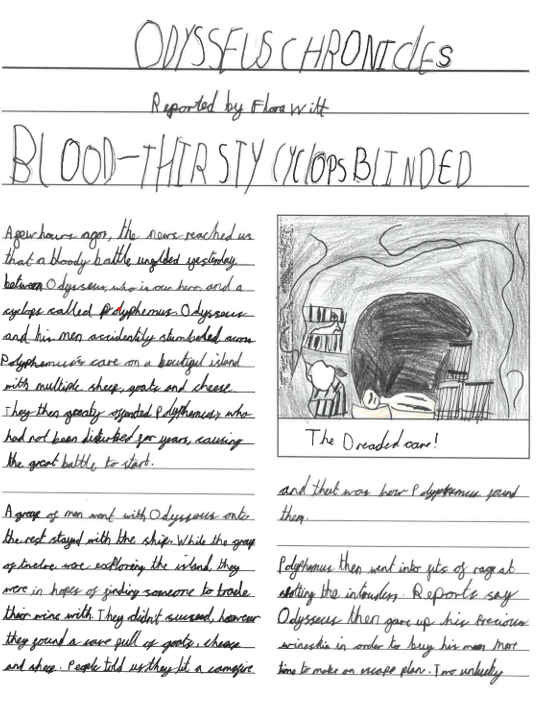 ODYSSEUS CHRONICLES
Reported by Flora Witt
BLOOD-THIRSTY CYCLOPS BLINDED
A few hours agon, the news reached us
that a bloody battle unfolded yesterday
between Odysseus, who is our hero and a
cyclops called Polyphemus. Odysseus
and his men accidently stumbled across
Polyphemus's cave on a beautiful island
with multiple sheep, goats and cheese.
They then greatly offended Polyphemus, who
had not been disturbed for years, causing
the great battle to start.
A group of men went with Odysseus onto
the rest stayed with the ship. While the group
of twelve were exploring the island, they
were in hopes of finding someone to trade
their wine with. They didn't succeed, however
they found a cave full of goats, cheese
and sheep. People told us they lit a campfire
The Dreaded cave!
and that was how Polyphemus found
them.
Polyphemus then went into fits of rage at
spotting the intruders. Reports say
Odysseus then gave up his precious
wineskin in order to buy his men more
time to make an escape plan. Two unlucky